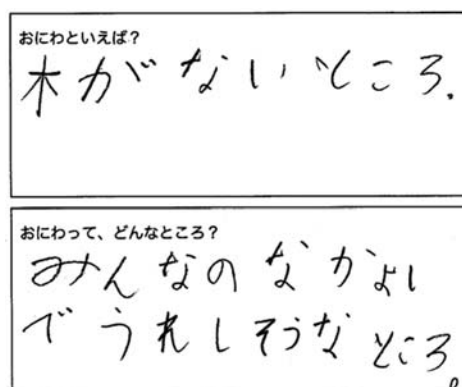 おにわといえば？
木がないところ.
おにわって、どんなところ？
みんなのなかよし
でうれしそうなところ